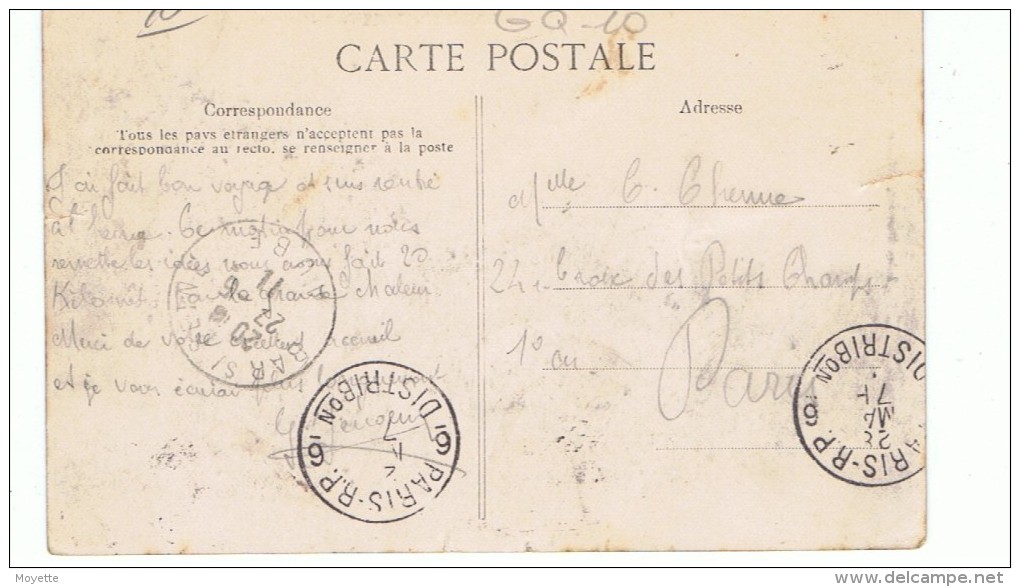 GQ-10
CARTE POSTALE
Correspondance
Tous les pays étrangers n'acceptent pas la
correspondance au recto, se renseigner à la poste
J'ai fait bon voyage et suis rentré
à l' Ce matin pour nous
remettre les idées nous avons fait 20
Kilomèt. par la grande chaleur
Merci de votre excellent accueil
et je vous écrirai plus longuement
Adresse
Mlle C. Chenue
24 Croix des Petits Champs
1o au
Paris
PARIS-R.P. DISTRIBON
9
PARIS-R.P. DISTRIBON
9
Moyette
www.delcampe.net